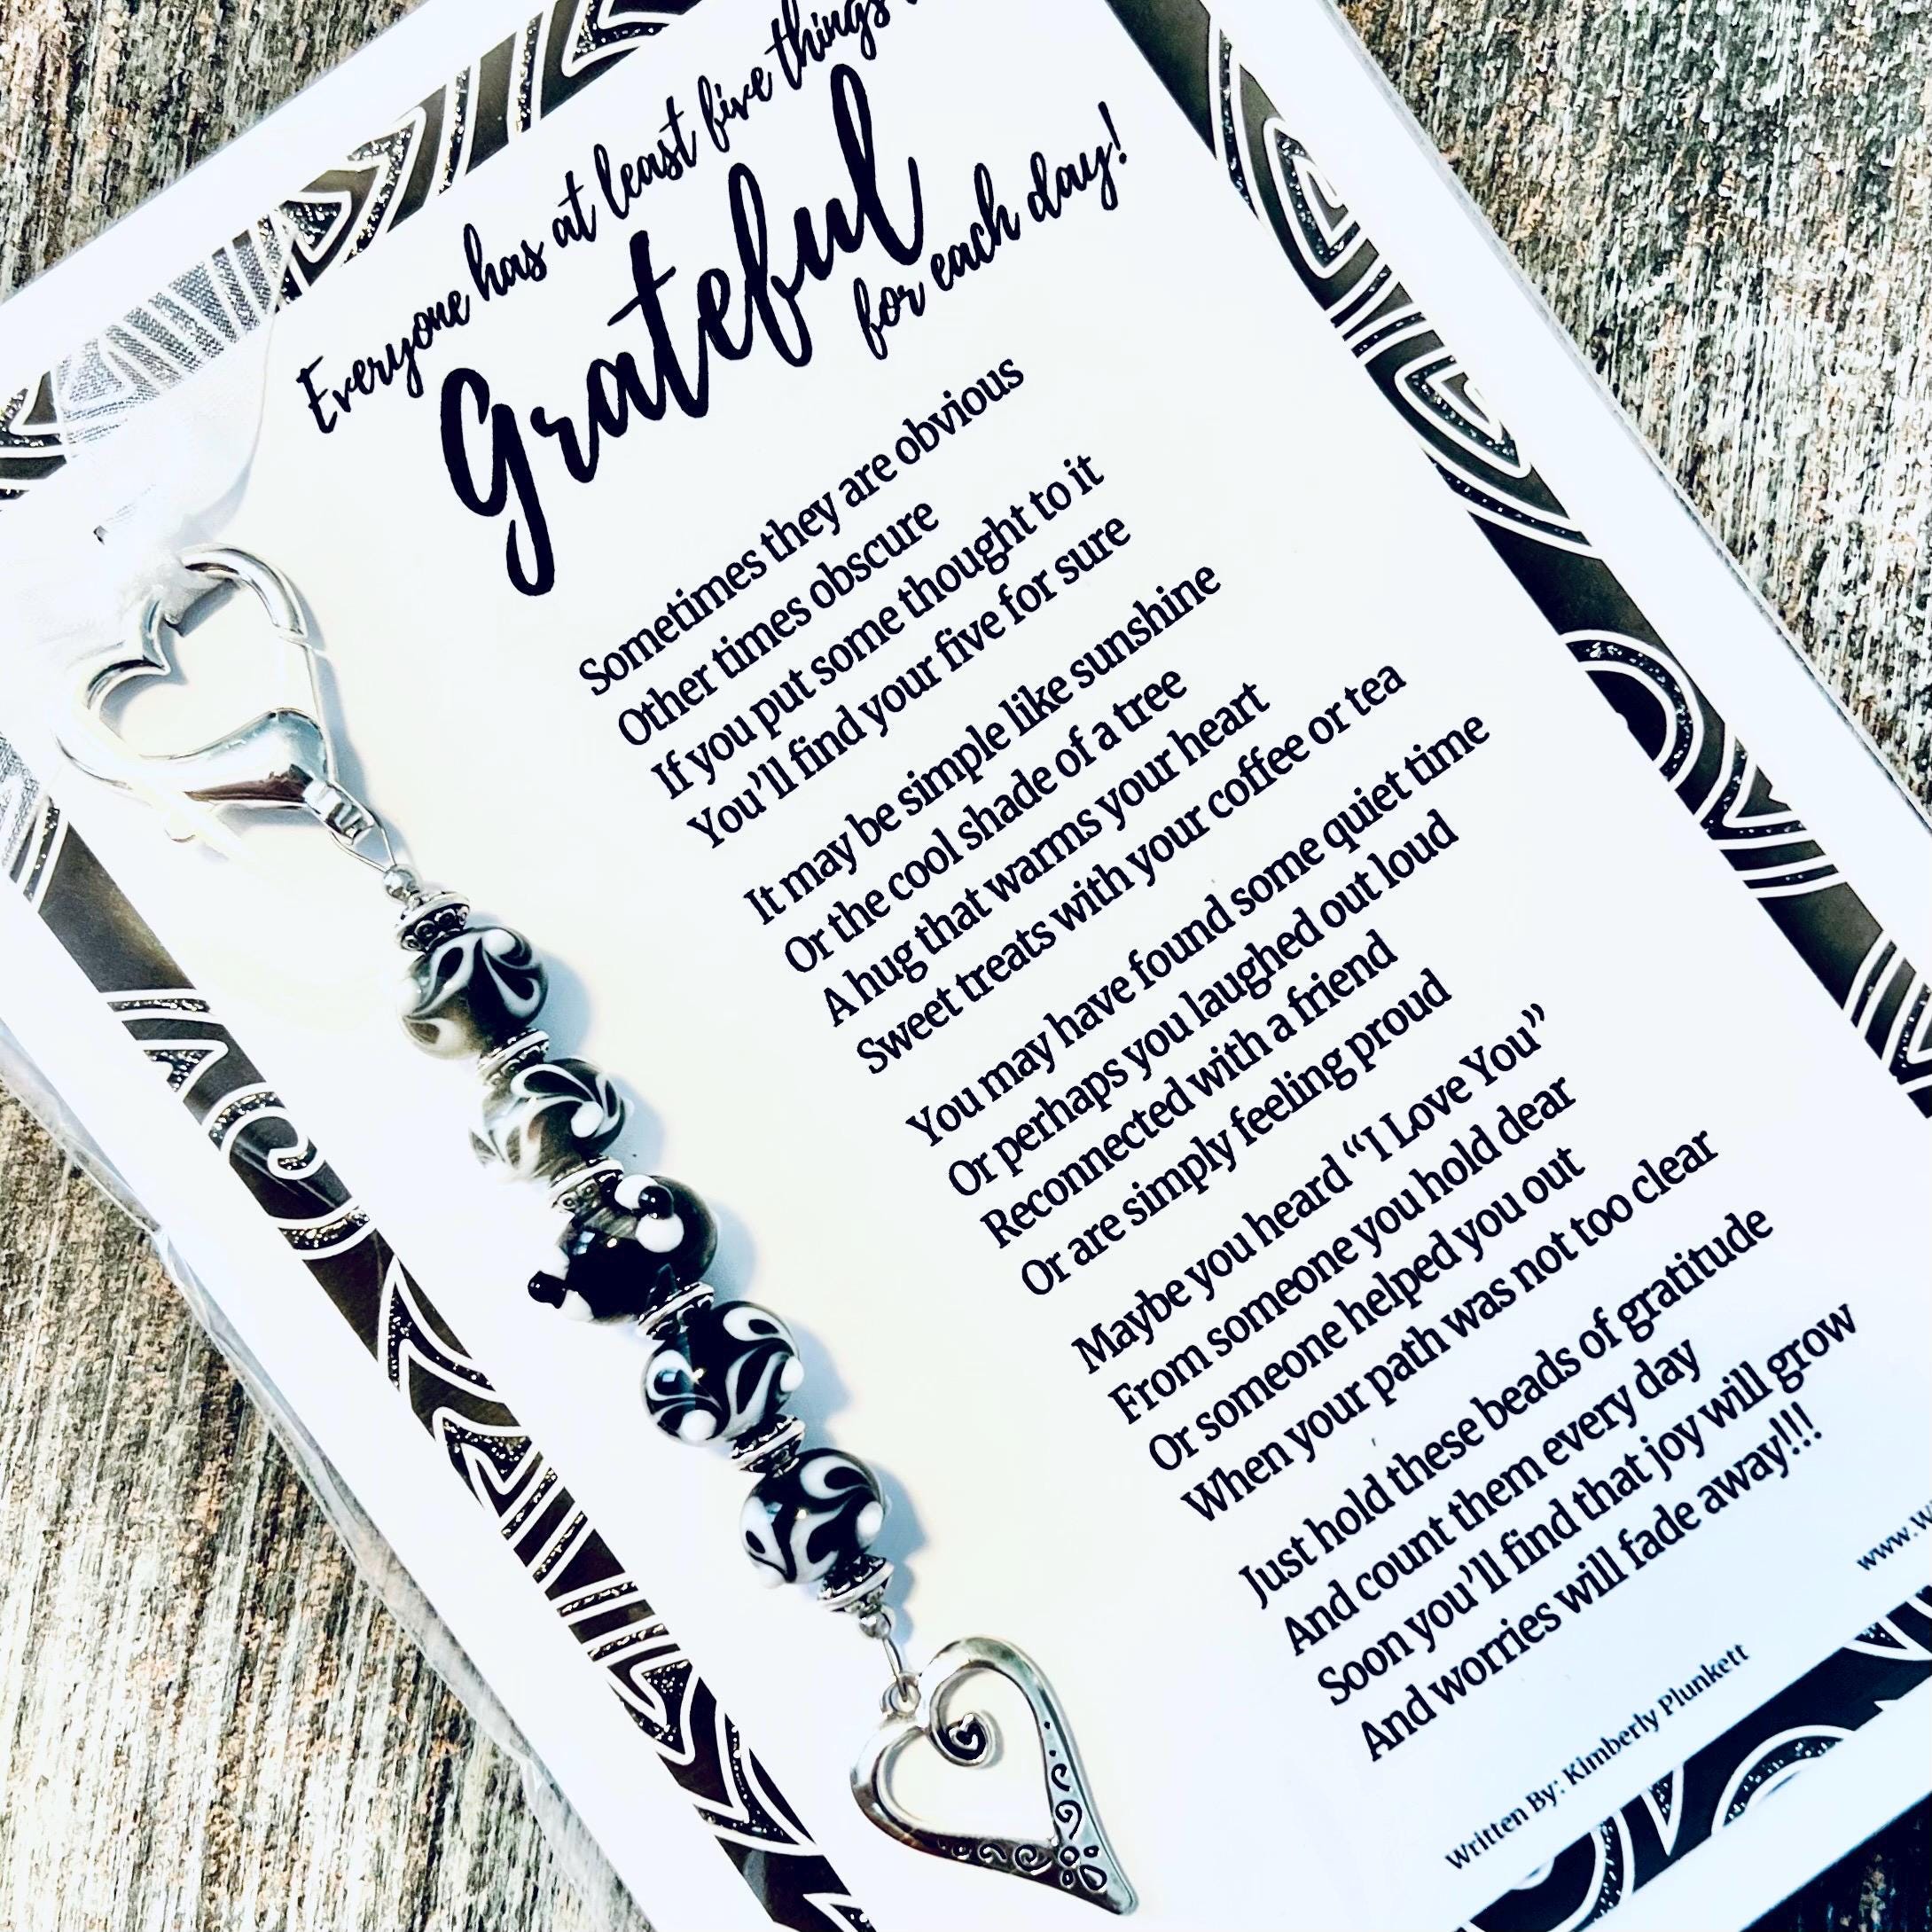 Everyone has at least five things
Grateful
for each day!
Sometimes they are obvious
Other times obscure
If you put some thought to it
You'll find your five for sure
It may be simple like sunshine
Or the cool shade of a tree
A hug that warms your heart
Sweet treats with your coffee or tea
You may have found some quiet time
Or perhaps you laughed out loud
Reconnected with a friend
Or are simply feeling proud
Maybe you heard “I Love You”
From someone you hold dear
Or someone helped you out
When your path was not too clear
Just hold these beads of gratitude
And count them every day
Soon you'll find that joy will grow
And worries will fade away!!!
Written By: Kimberly Plunkett